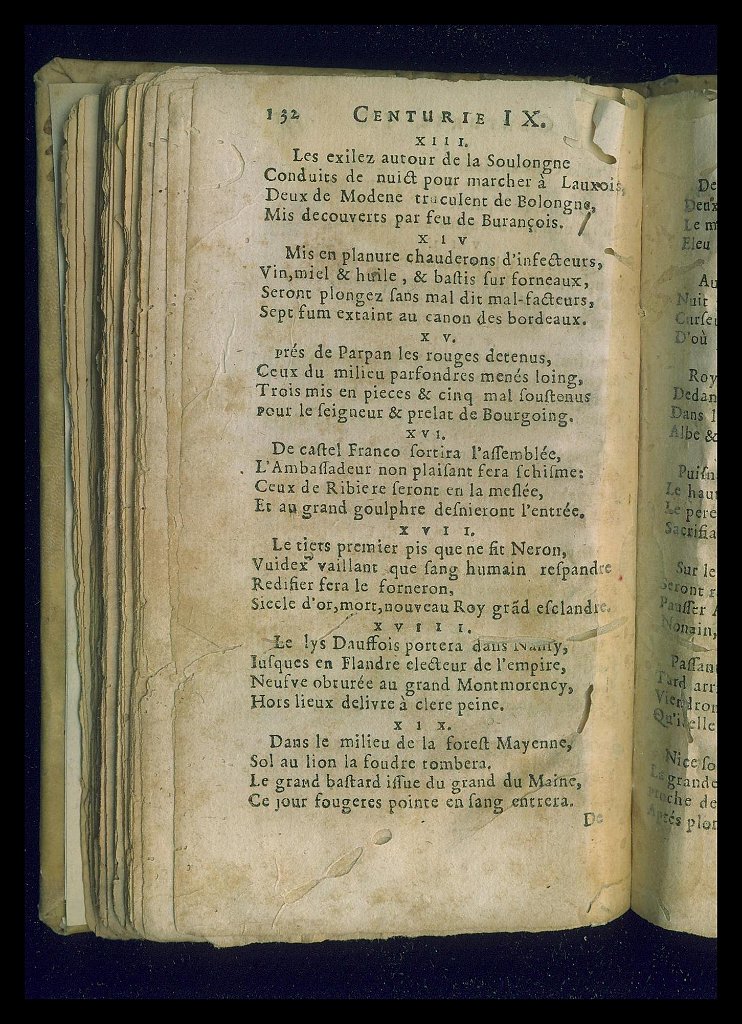 132 CENTURIE IX.
XIII.
Les exilez autour de la Soulongne
Conduits de nuict pour marcher à Lauxois,
Deux de Modene truculent de Bolongne,
Mis decouverts par feu de Burançois.
XIV
Mis en planure chauderons d'infecteurs,
Vin, miel & huile, & bastis sur forneaux,
Seront plongez sans mal dit mal-facteurs,
Sept fum extaint au canon des bordeaux.
XV.
prés de Parpan les rouges detenus,
Ceux du milieu parfondres menés loing,
Trois mis en pieces & cinq mal soustenus
Pour le seigneur & prelat de Bourgoing.
XVI.
De castel Franco sortira l'assemblée,
L'Ambassadeur non plaisant fera schisme:
Ceux de Ribiere seront en la meslée,
Et au grand goulphre desnieront l'entrée.
XVII.
Le tiers premier pis que ne fit Neron,
Vuidex vaillant que sang humain respandre
Redifier fera le forneron,
Siecle d'or, mort, nouveau Roy grãd esclandre.
XVIII.
Le lys Dauffois portera dans Nancy,
Iusques en Flandre electeur de l'empire,
Neufve obturée au grand Montmorency,
Hors lieux delivre à clere peine.
XIX.
Dans le milieu de la forest Mayenne,
Sol au lion la foudre tombera.
Le grand bastard issue du grand du Maine,
Ce jour fougeres pointe en sang entrera.
De
De
Deux
Le m
Eleu
Au
Nuit
Curseu
D'où
Roy
Dedan
Dans l
Albe &
Puisn
Le hau
Le pere
Sacrifia
Sur le
Seront r
Pausser A
Nonain,
Passant
Tard arr
Viendron
Qu'icelle
Nice so
La grande
proche de
Aprés plon